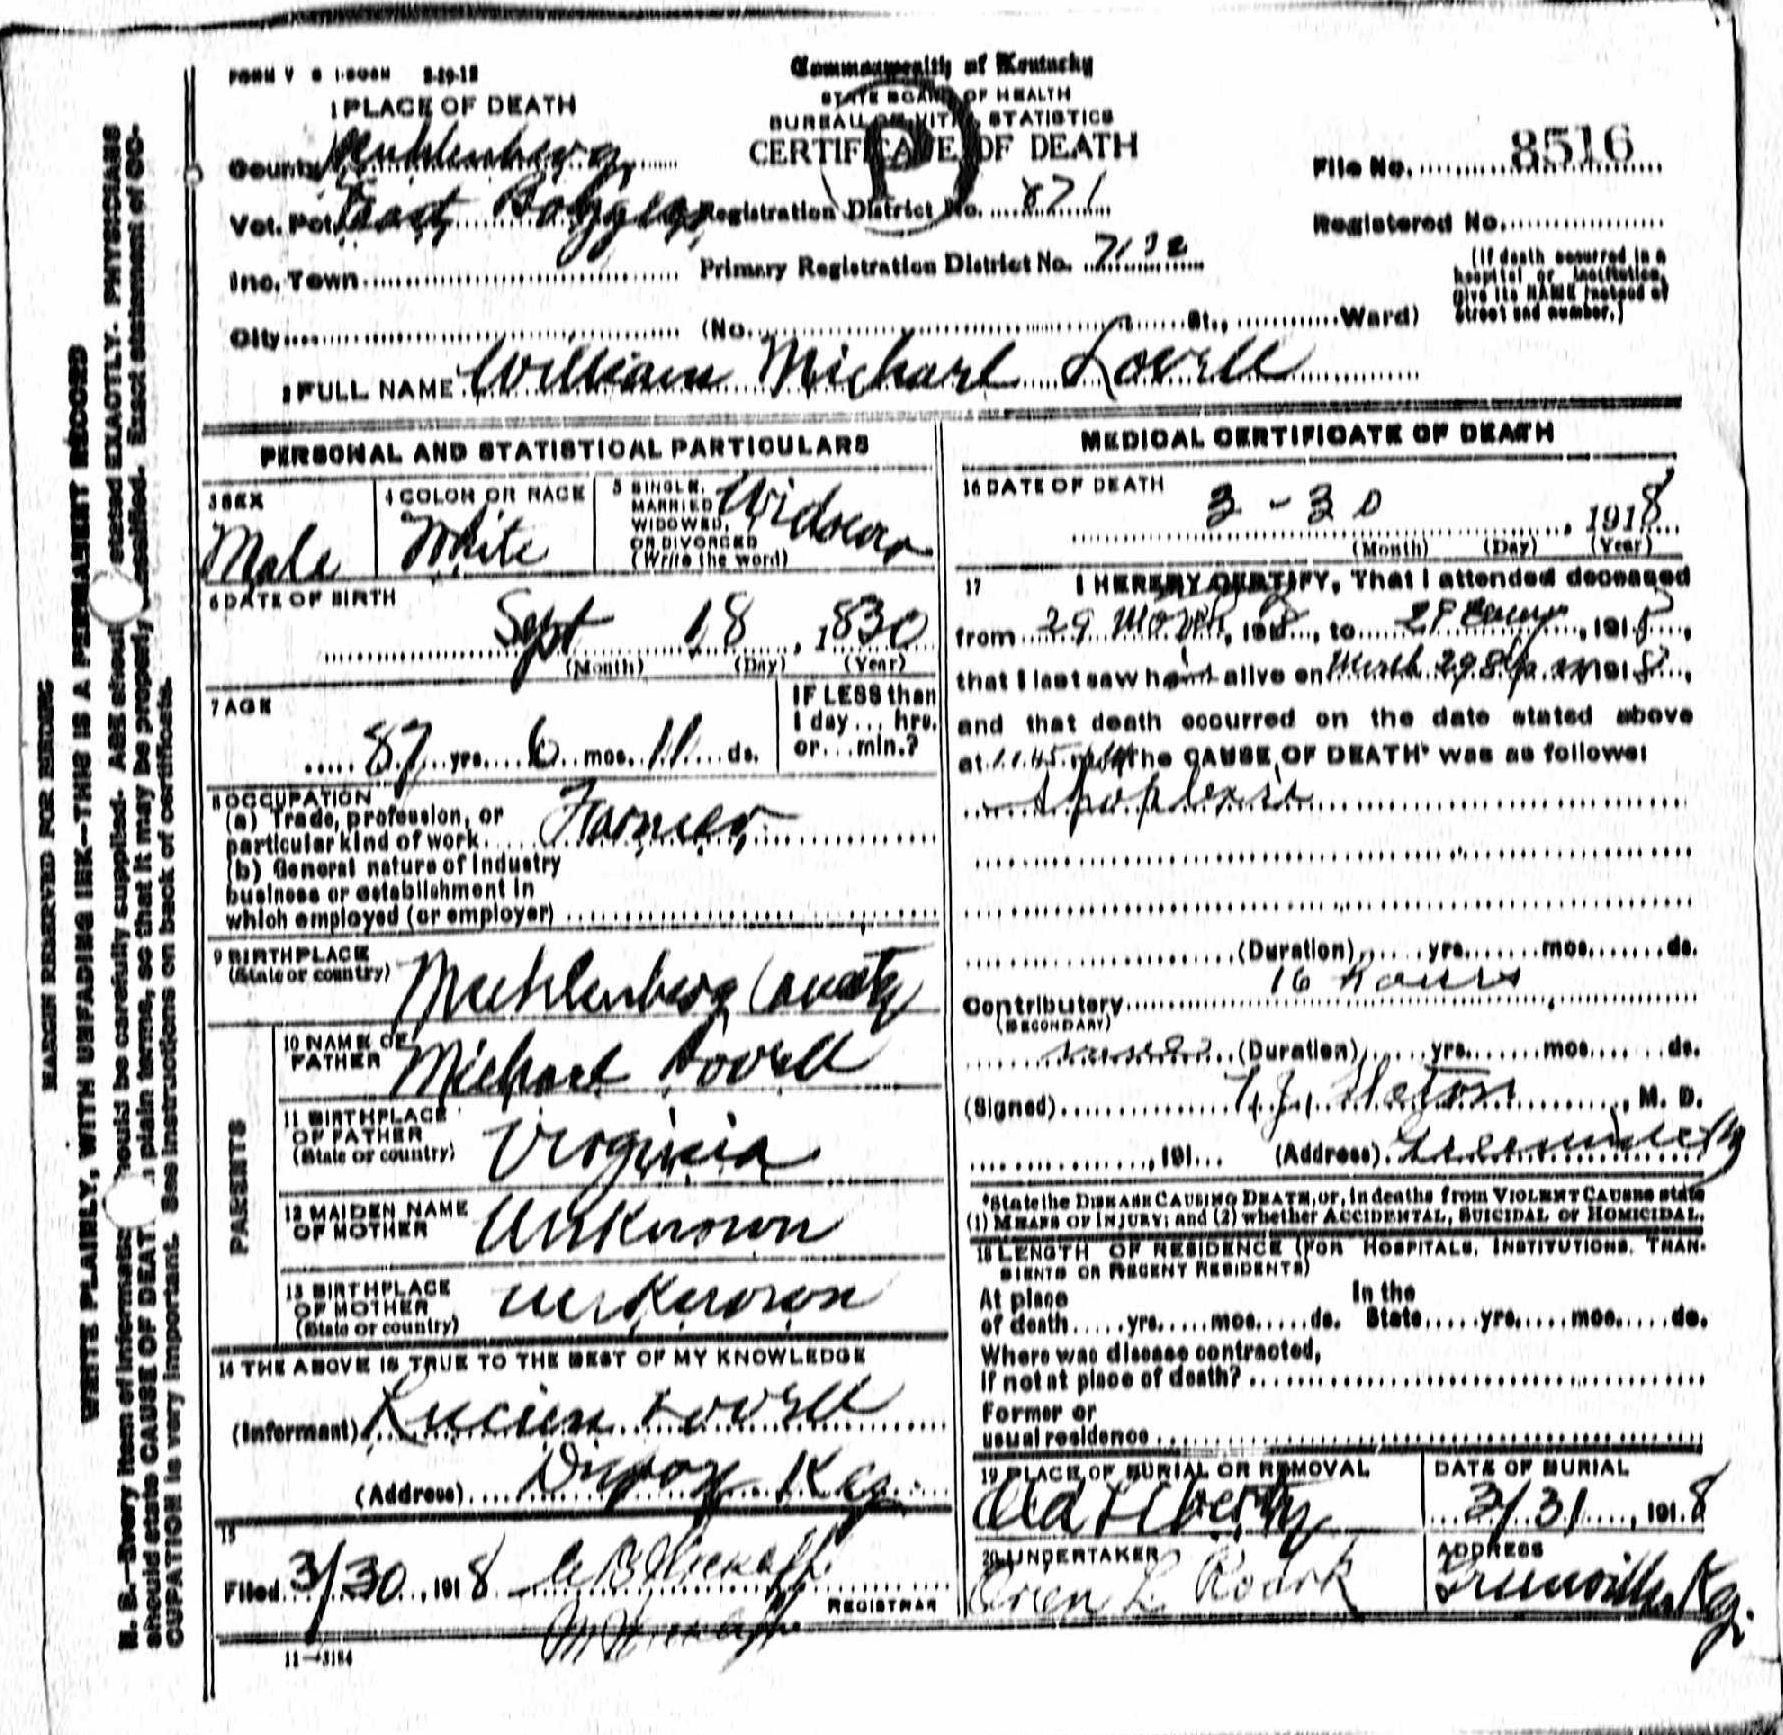 FORM V S 1-500M 2-19-12
Commonwealth of Kentucky
STATE BOARD OF HEALTH
BUREAU OF VITAL STATISTICS
CERTIFICATE OF DEATH
1 PLACE OF DEATH
County Muhlenberg
Vot. Pct. East Boggess Registration District No. 871
Inc. Town Primary Registration District No. 7132
City (No. St., Ward)
File No. 8516
Registered No.
(If death occurred in a
hospital or institution,
give its NAME instead of
street and number.)
2 FULL NAME William Michael Lovell
PERSONAL AND STATISTICAL PARTICULARS
3 SEX
Male
4 COLOR OR RACE
White
5 SINGLE,
MARRIED
WIDOWED,
OR DIVORCED
(Write the word)
Widower
6 DATE OF BIRTH
Sept 18, 1830
(Month) (Day) (Year)
7 AGE
87 yrs. 6 mos. 11 ds.
IF LESS than
1 day... hrs.
or...min.?
8 OCCUPATION
(a) Trade, profession, or
particular kind of work Farmer
(b) General nature of industry
business or establishment in
which employed (or employer)
9 BIRTHPLACE
(State or country) Muhlenberg County
PARENTS
10 NAME OF
FATHER Michael Lovell
11 BIRTHPLACE
OF FATHER
(State or country) Virginia
12 MAIDEN NAME
OF MOTHER Unknown
13 BIRTHPLACE
OF MOTHER
(State or country) unknown
14 THE ABOVE IS TRUE TO THE BEST OF MY KNOWLEDGE
(Informant) Lucien Lovell
(Address) Ky.
15
Filed 3/30, 1918
REGISTRAR
11-3184
MEDICAL CERTIFICATE OF DEATH
16 DATE OF DEATH
3 - 30, 1918
(Month) (Day) (Year)
17 I HEREBY CERTIFY, That I attended deceased
from 29 March, 1918, to 29, 1918,
that I last saw him alive on March 29 1918,
and that death occurred on the date stated above
at 11.45 m. The CAUSE OF DEATH* was as follows:
Apoplexy
(Duration) yrs. mos. ds.
16 hours
Contributory
(SECONDARY)
(Duration) yrs. mos. ds.
(Signed) T.J. Slaton, M. D.
, 191 (Address) Greenville Ky
*State the DISEASE CAUSING DEATH, or, in deaths from VIOLENT CAUSES state
(1) MEANS OF INJURY; and (2) whether ACCIDENTAL, SUICIDAL or HOMICIDAL.
18 LENGTH OF RESIDENCE (FOR HOSPITALS, INSTITUTIONS, TRAN-
SIENTS OR RECENT RESIDENTS)
At place In the
of death yrs. mos. ds. State yrs. mos. ds.
Where was disease contracted,
if not at place of death?
Former or
usual residence
19 PLACE OF BURIAL OR REMOVAL
Old Liberty
DATE OF BURIAL
3/31, 1918
20 UNDERTAKER
Orien L Roark
ADDRESS
Greenville Ky.
MARGIN RESERVED FOR BINDING
WRITE PLAINLY, WITH UNFADING INK—THIS IS A PERMANENT RECORD
N. B.—Every item of information should be carefully supplied. AGE should stated EXACTLY. PHYSICIANS
should state CAUSE OF DEATH plain terms, so that it may be properly classified. Exact statement of OC-
CUPATION is very important. See instructions on back of certificate.